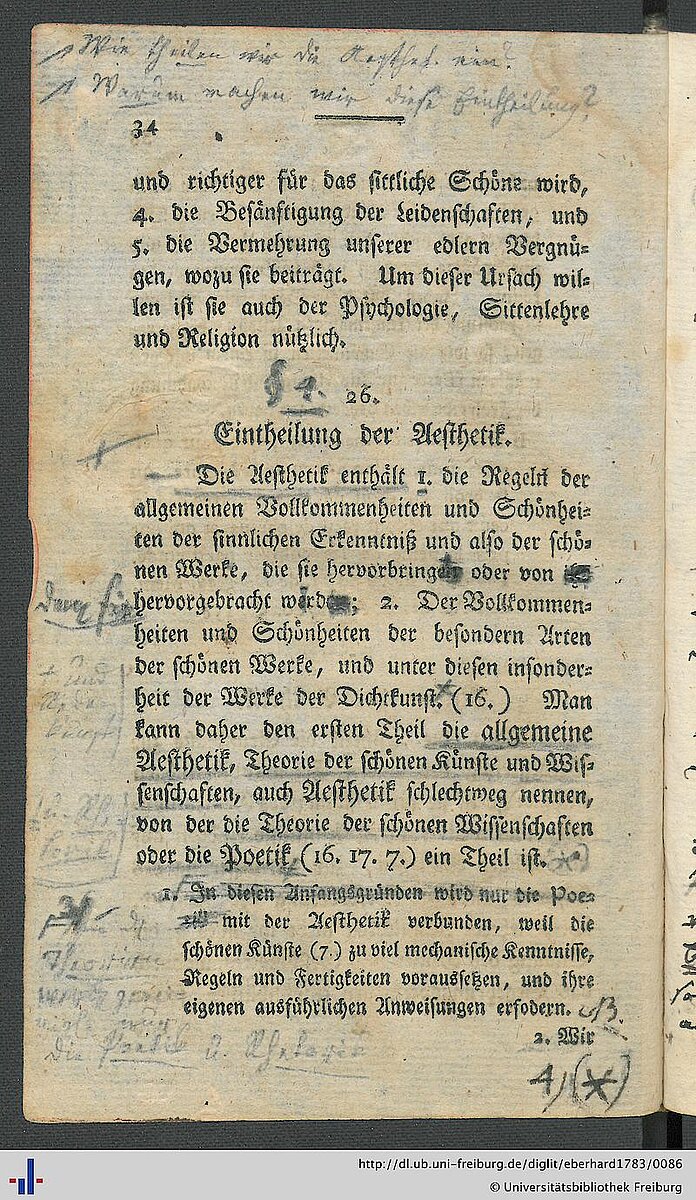 Wie theilen wir die Aesthet. ein?
Warum machen wir diese Eintheilung?
34
und richtiger für das sittliche Schöne wird,
4. die Besänftigung der Leidenschaften, und
5. die Vermehrung unserer edlern Vergnü-
gen, wozu sie beiträgt. Um dieser Ursach wil-
len ist sie auch der Psychologie, Sittenlehre
und Religion nützlich.
§ 4. 26.
Eintheilung der Aesthetik.
Die Aesthetik enthält 1. die Regeln der
allgemeinen Vollkommenheiten und Schönhei-
ten der sinnlichen Erkenntniß und also der schö-
nen Werke, die sie hervorbringen oder von
hervorgebracht werden; 2. Der Vollkommen-
heiten und Schönheiten der besondern Arten
der schönen Werke, und unter diesen insonder-
heit der Werke der Dichtkunst. (16.) Man
kann daher den ersten Theil die allgemeine
Aesthetik, Theorie der schönen Künste und Wis-
senschaften, auch Aesthetik schlechtweg nennen,
von der die Theorie der schönen Wissenschaften
oder die Poetik, (16. 17. 7.) ein Theil ist.
1. In diesen Anfangsgründen wird nur die Poe-
mit der Aesthetik verbunden, weil die
schönen Künste (7.) zu viel mechanische Kenntnisse,
Regeln und Fertigkeiten voraussetzen, und ihre
eigenen ausführlichen Anweisungen erfodern.
2. Wir
die Poetik u. Rhetorik
4) (*)
http://dl.ub.uni-freiburg.de/diglit/eberhard1783/0086
© Universitätsbibliothek Freiburg